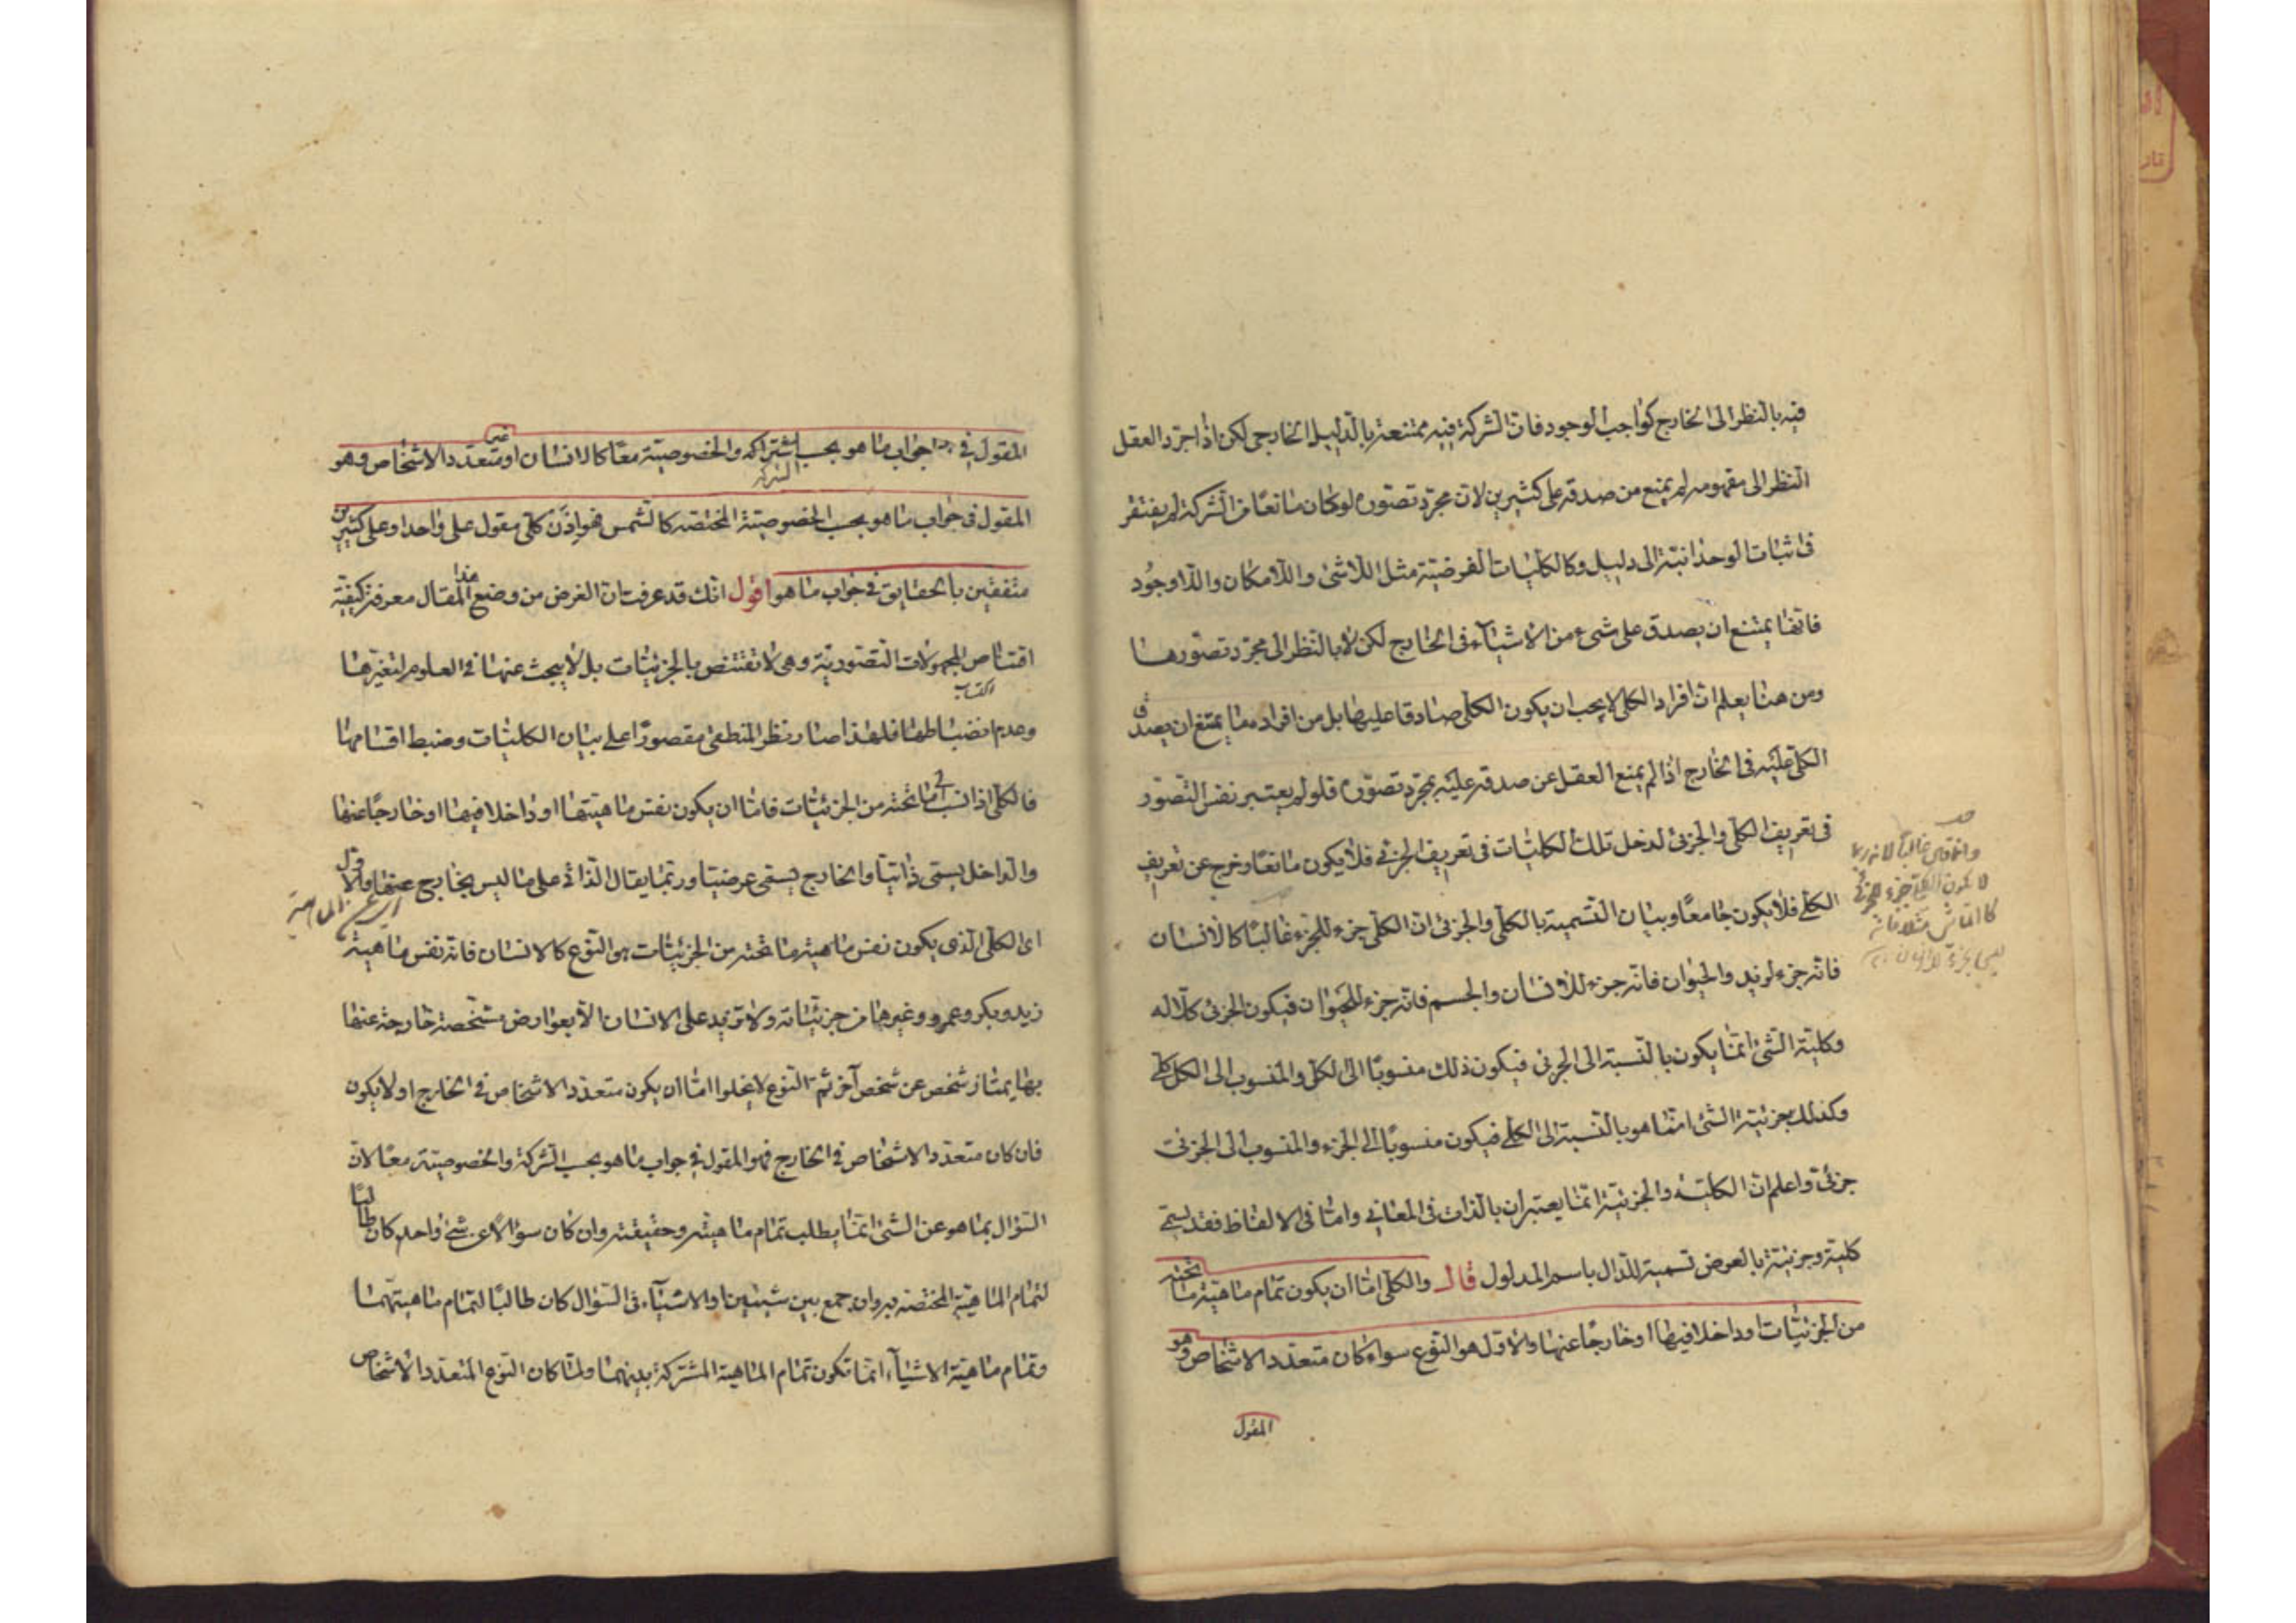 فيه بالنظر الى الخارج كواجب الوجود فان الشركة فيه ممتنعة بالدليل الخارجى لكن اذا جرد العقل
النظر الى مفهومه لم يمنع من صدقه على كثيرين لان مجرد تصوره لو كان مانعا من الشركة لم يفتقر
فى اثبات الوحدانية الى دليل وكالكليات الفرضية مثل اللاشئ واللاامكان واللاوجود
فانها يمتنع ان يصدق على شىء من الاشياء فى الخارج لكن لا بالنظر الى مجرد تصورها
ومن هنا يعلم ان افراد الكلى لا يجب ان يكون الكلى صادقا عليها بل من افراده ما يمتنع ان يصدق
الكلى عليه فى الخارج اذا لم يمنع العقل عن صدقه عليه بمجرد تصوره فلو لم يعتبر نفس التصور
فى تعريف الكلى والجزئى لدخل تلك الكليات فى تعريف الجزئى فلا يكون مانعا وخرج عن تعريف
الكلى فلا يكون جامعا وبيان التسمية بالكلى والجزئى ان الكلى جزء للجزء غالبا كالانسان
فانه جزء لزيد والحيوان فانه جزء للانسان والجسم فانه جزء للحيوان فيكون الجزئى كلا له
وكلية الشئ انما يكون بالنسبة الى الجزئى فيكون ذلك منسوبا الى الكل والمنسوب الى الكل كلى
وكذلك جزئية الشئ انما هو بالنسبة الى الكلى فيكون منسوبا الى الجزء والمنسوب الى الجزئى
جزئى واعلم ان الكلية والجزئية انما يعتبران بالذات فى المعانى واما فى الالفاظ فقد يسمى
كلية وجزئية بالعرض تسمية للدال باسم المدلول قال والكلى اما ان يكون تمام ماهية ما تحته
من الجزئيات او داخلا فيها او خارجا عنها والاول هو النوع سواء كان متعدد الاشخاص وهو
المقول
لا يكون الكلى جزء للجزئى
المقول فى جواب ما هو بحسب الشركة والخصوصية معا كالانسان او غير متعدد الاشخاص وهو
المقول فى جواب ما هو بحسب الخصوصية المختصة كالشمس فهو اذن كلى مقول على واحد او على كثيرين
متفقين بالحقايق فى جواب ما هو اقول انك قد عرفت ان الغرض من وضع هذا المقال معرفة كيفية
اقتناص المجهولات التصورية وهى لا تقتنص بالجزئيات بل لا يبحث عنها فى العلوم لتغيرها
اكتساب
وعدم انضباطها فلهذا صار نظر المنطقى مقصورا على بيان الكليات وضبط اقسامها
فالكلى اذا نسب الى ما تحته من الجزئيات فاما ان يكون نفس ماهيتها او داخلا فيها او خارجا عنها
والداخل يسمى ذاتيا والخارج يسمى عرضيا وربما يقال الذاتى على ما ليس بخارج عنها والاول
اى الكلى الذى يكون نفس ماهية ما تحته من الجزئيات هو النوع كالانسان فانه نفس ماهية
زيد وبكر وعمرو وغيرها من جزئياته ولا تزيد على الانسان الا بعوارض مشخصة خارجة عنها
بها يمتاز شخص عن شخص آخر ثم النوع لا يخلوا اما ان يكون متعدد الاشخاص فى الخارج او لا يكون
فان كان متعدد الاشخاص فى الخارج فهو المقول فى جواب ما هو بحسب الشركة والخصوصية معا لان
السؤال بما هو عن الشئ انما يطلب تمام ماهيته وحقيقته وان كان سؤالا عن شئ واحد كان طالبا
لتمام الماهية المختصة به وان جمع بين شيئين او الاشياء فى السؤال كان طالبا لتمام ماهيتهما
وتمام ماهية الاشياء انما تكون تمام الماهية المشتركة بينهما ولما كان النوع المتعدد الاشخاص